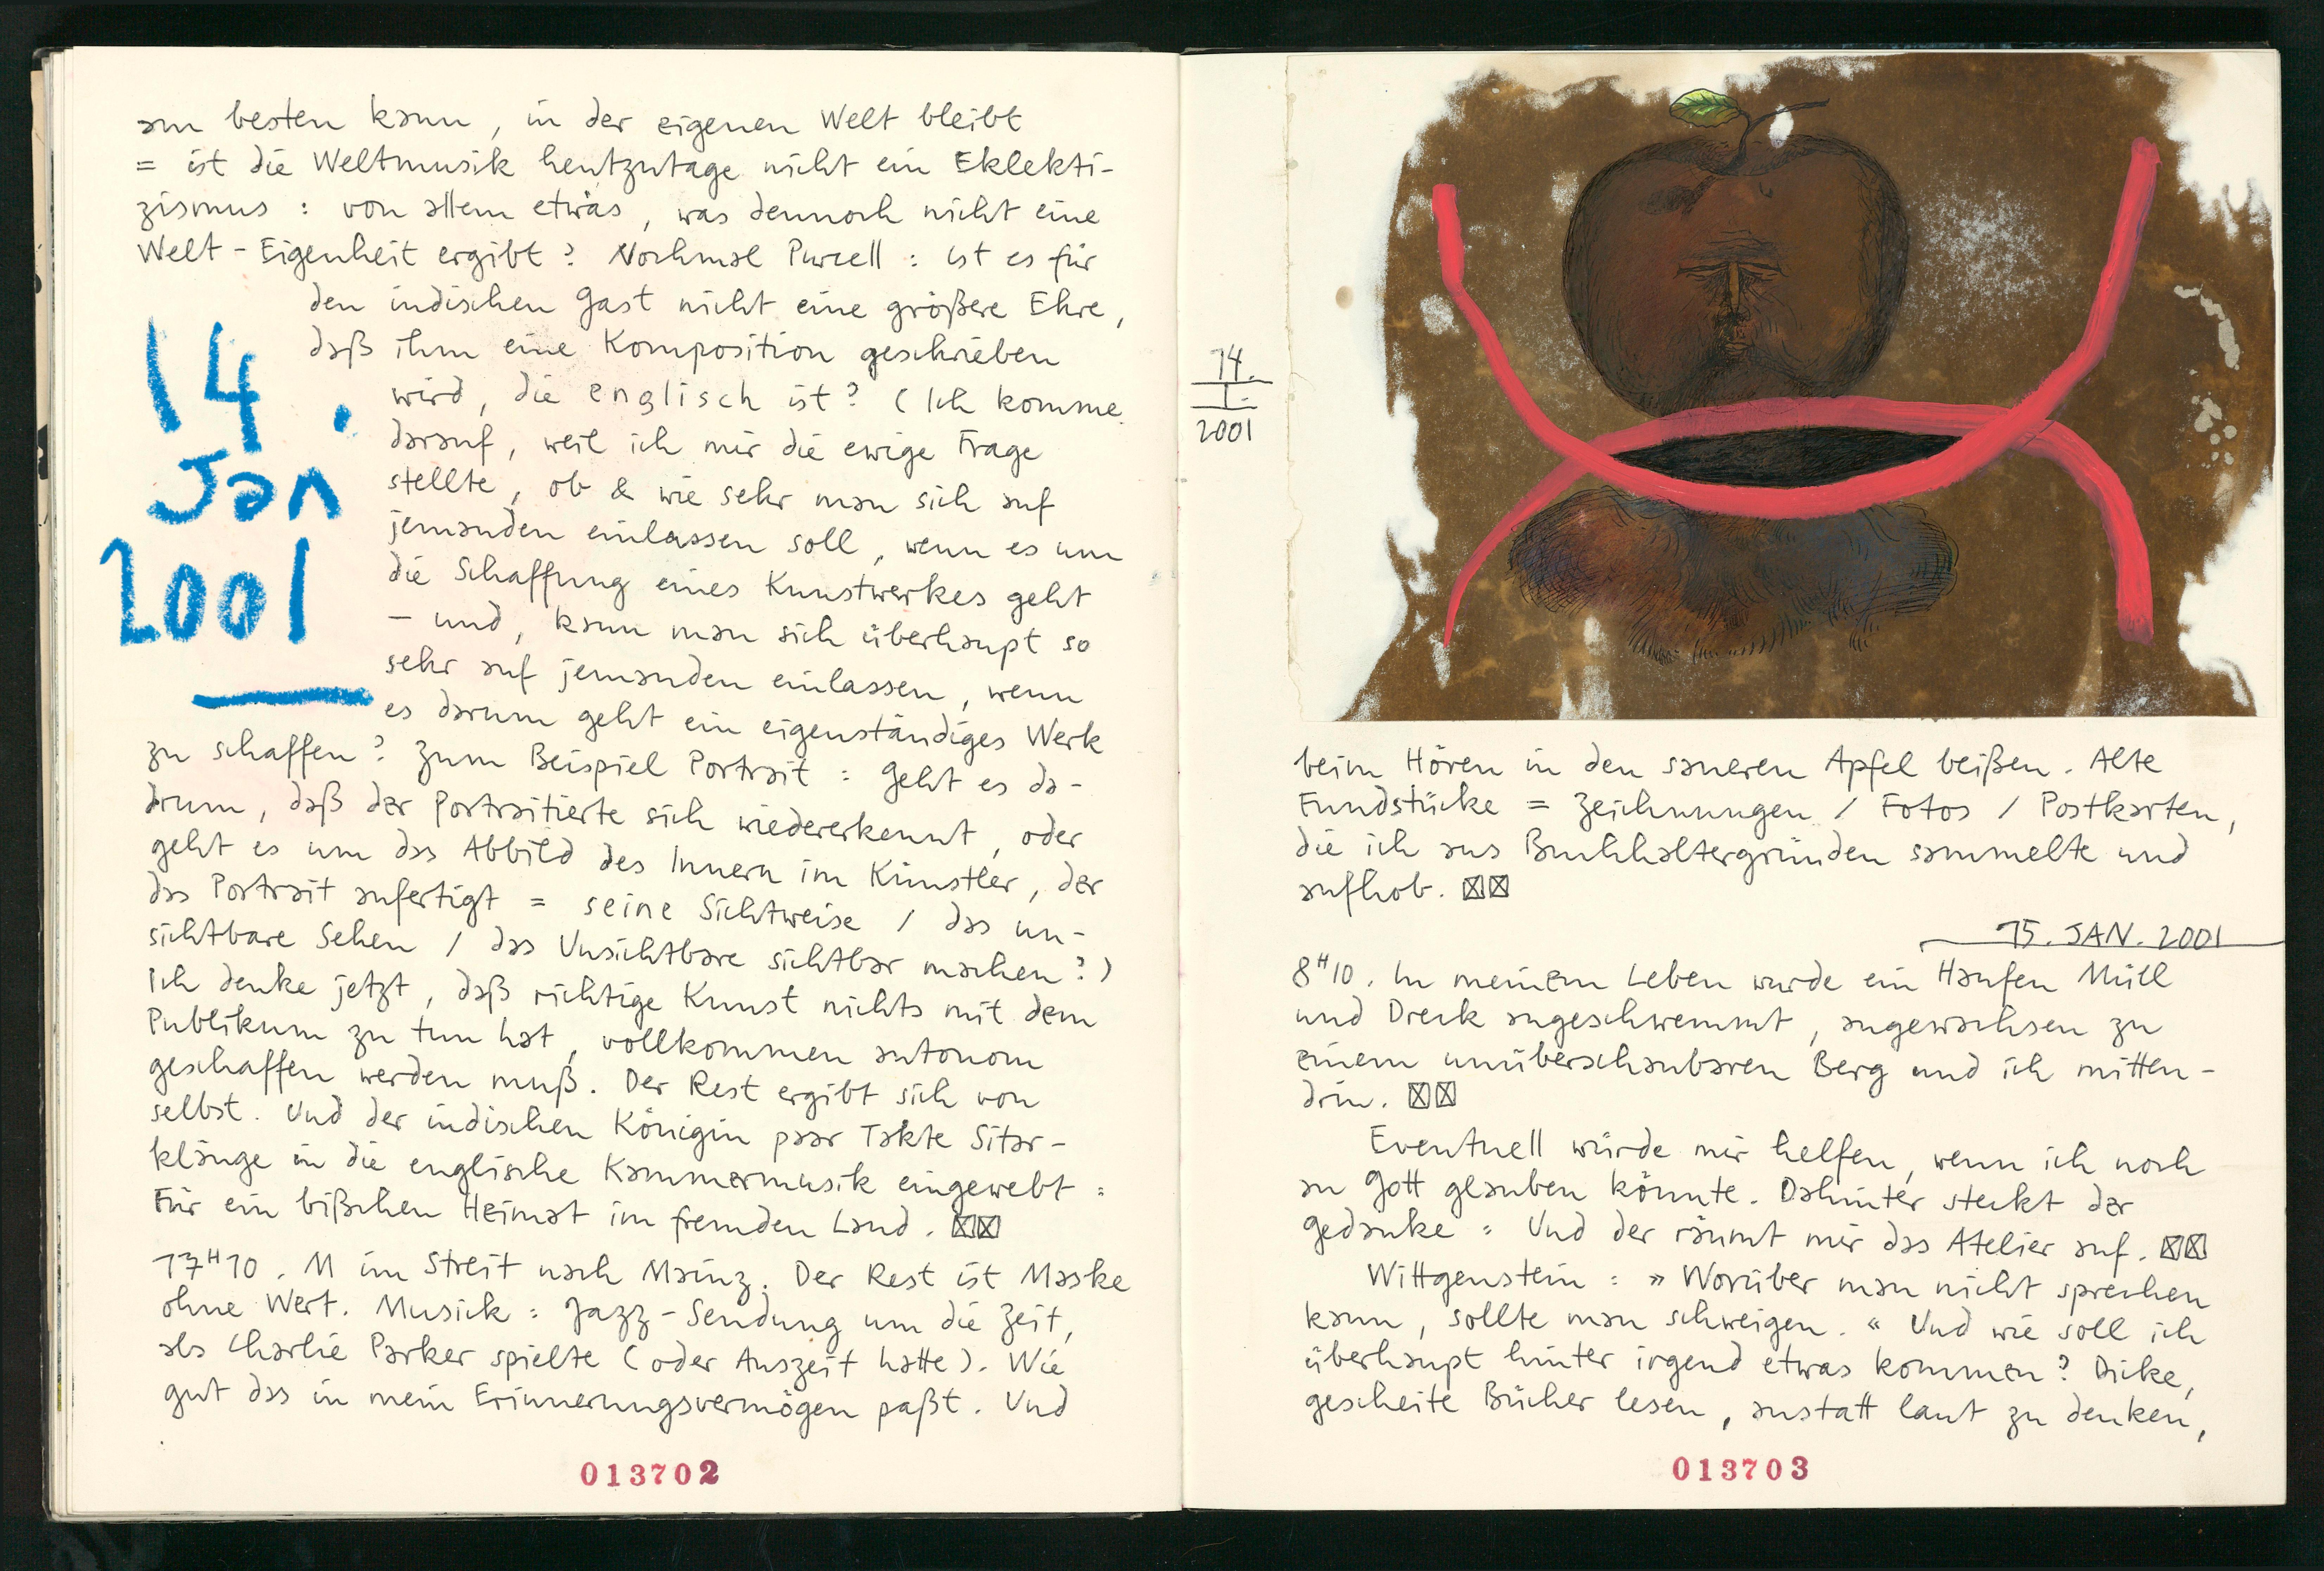 am besten kann, in der eigenen Welt bleibt
= ist die Weltmusik heutzutage nicht ein Eklekti-
zismus : von allem etwas, was dennoch nicht eine
Welt-Eigenheit ergibt? Nochmal Purcell : ist es für
den indischen Gast nicht eine größere Ehre,
daß ihm eine Komposition geschrieben
wird, die englisch ist? (Ich komme
darauf, weil ich mir die ewige Frage
stellte, ob & wie sehr man sich auf
jemanden einlassen soll, wenn es um
die Schaffung eines Kunstwerkes geht
– und, kann man sich überhaupt so
sehr auf jemanden einlassen, wenn
es darum geht ein eigenständiges Werk
zu schaffen? Zum Beispiel Portrait : Geht es da-
drum, daß der Portraitierte sich wiedererkennt, oder
geht es um das Abbild des Innern im Künstler, der
das Portrait anfertigt = seine Sichtweise / das un-
sichtbare Sehen / das Unsichtbare sichtbar machen?)
Ich denke jetzt, daß richtige Kunst nichts mit dem
Publikum zu tun hat, vollkommen autonom
geschaffen werden muß. Der Rest ergibt sich von
selbst. Und der indischen Königin paar Takte Sitar-
klänge in die englische Kammermusik eingewebt :
Für ein bißchen Heimat im fremden Land. ☒☒
17H10. M im Streit nach Mainz. Der Rest ist Maske
ohne Wert. Musick : Jazz-Sendung um die Zeit,
als Charlie Parker spielte (oder Auszeit hatte). Wie
gut das in mein Erinnerungsvermögen paßt. Und
14.
Jan
2001
013702
14.
I.
2001
beim Hören in den saueren Apfel beißen. Alte
Fundstücke = Zeichnungen / Fotos / Postkarten,
die ich aus Buchhaltergründen sammelte und
aufhob. ☒☒
15. JAN. 2001
8H10. In meinem Leben wurde ein Haufen Müll
und Dreck angeschwemmt, angewachsen zu
einem unüberschaubaren Berg und ich mitten-
drin. ☒☒
Eventuell würde mir helfen, wenn ich noch
an Gott glauben könnte. Dahinter steckt der
Gedanke : Und der räumt mir das Atelier auf. ☒☒
Wittgenstein : » Worüber man nicht sprechen
kann, sollte man schweigen. « Und wie soll ich
überhaupt hinter irgend etwas kommen? Dicke,
gescheite Bücher lesen, anstatt laut zu denken,
013703